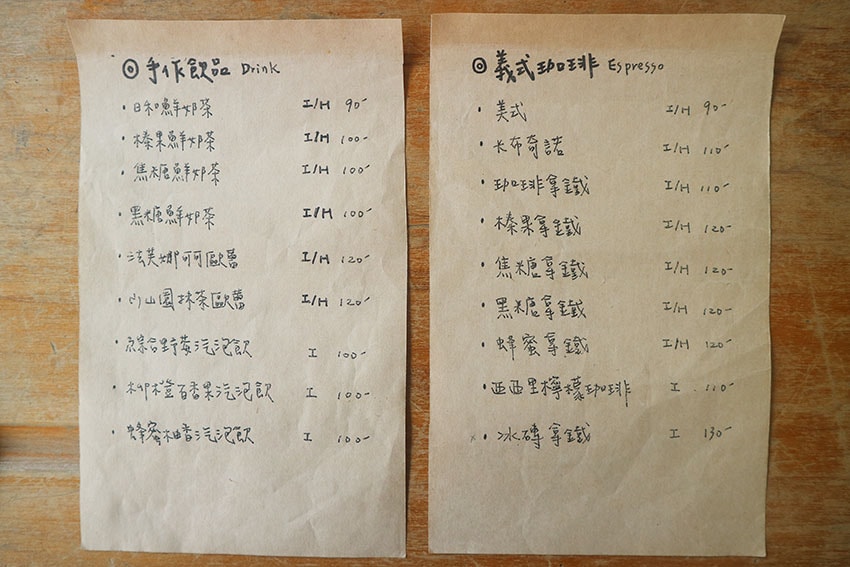 ◎ 手作飲品 Drink
・日和鮮奶茶 I/H 90-
・榛果鮮奶茶 I/H 100-
・焦糖鮮奶茶 I/H 100-
・黑糖鮮奶茶 I/H 100-
・法芙娜可可歐蕾 I/H 120-
・小山園抹茶歐蕾 I/H 120-
・綜合野莓汽泡飲 I 100-
・柳橙百香果汽泡飲 I 100-
・蜂蜜柚香汽泡飲 I 100-
◎ 義式珈琲 Espresso
・美式 I/H 90-
・卡布奇諾 I/H 110-
・珈琲拿鐵 I/H 110-
・榛果拿鐵 I/H 120-
・焦糖拿鐵 I/H 120-
・黑糖拿鐵 I/H 120-
・蜂蜜拿鐵 I/H 120-
・西西里檸檬珈琲 I 110-
・冰磚拿鐵 I 130-